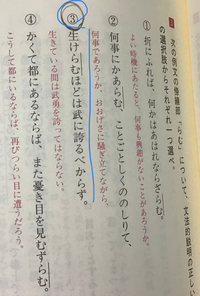 次の例文の傍線部「らむ」について、文法的説明の正しい
の選択肢からそれぞれ一つ選べ。
① 折にふれば、何かはあはれならざらむ。
よい時機にあたると、何事も興趣がないことがあろうか。
② 何事にかあらむ、ことごとしくののしりて、
何事であろうか、おおげさに騒ぎ立てながら、
③ 生けらむほどは武に誇るべからず。
生きている間は武勇を誇ってはならない。
④ かくて都にあるならば、また憂き目を見むずらむ。
こうして都にいるならば、再びつらい目に遭うだろう。